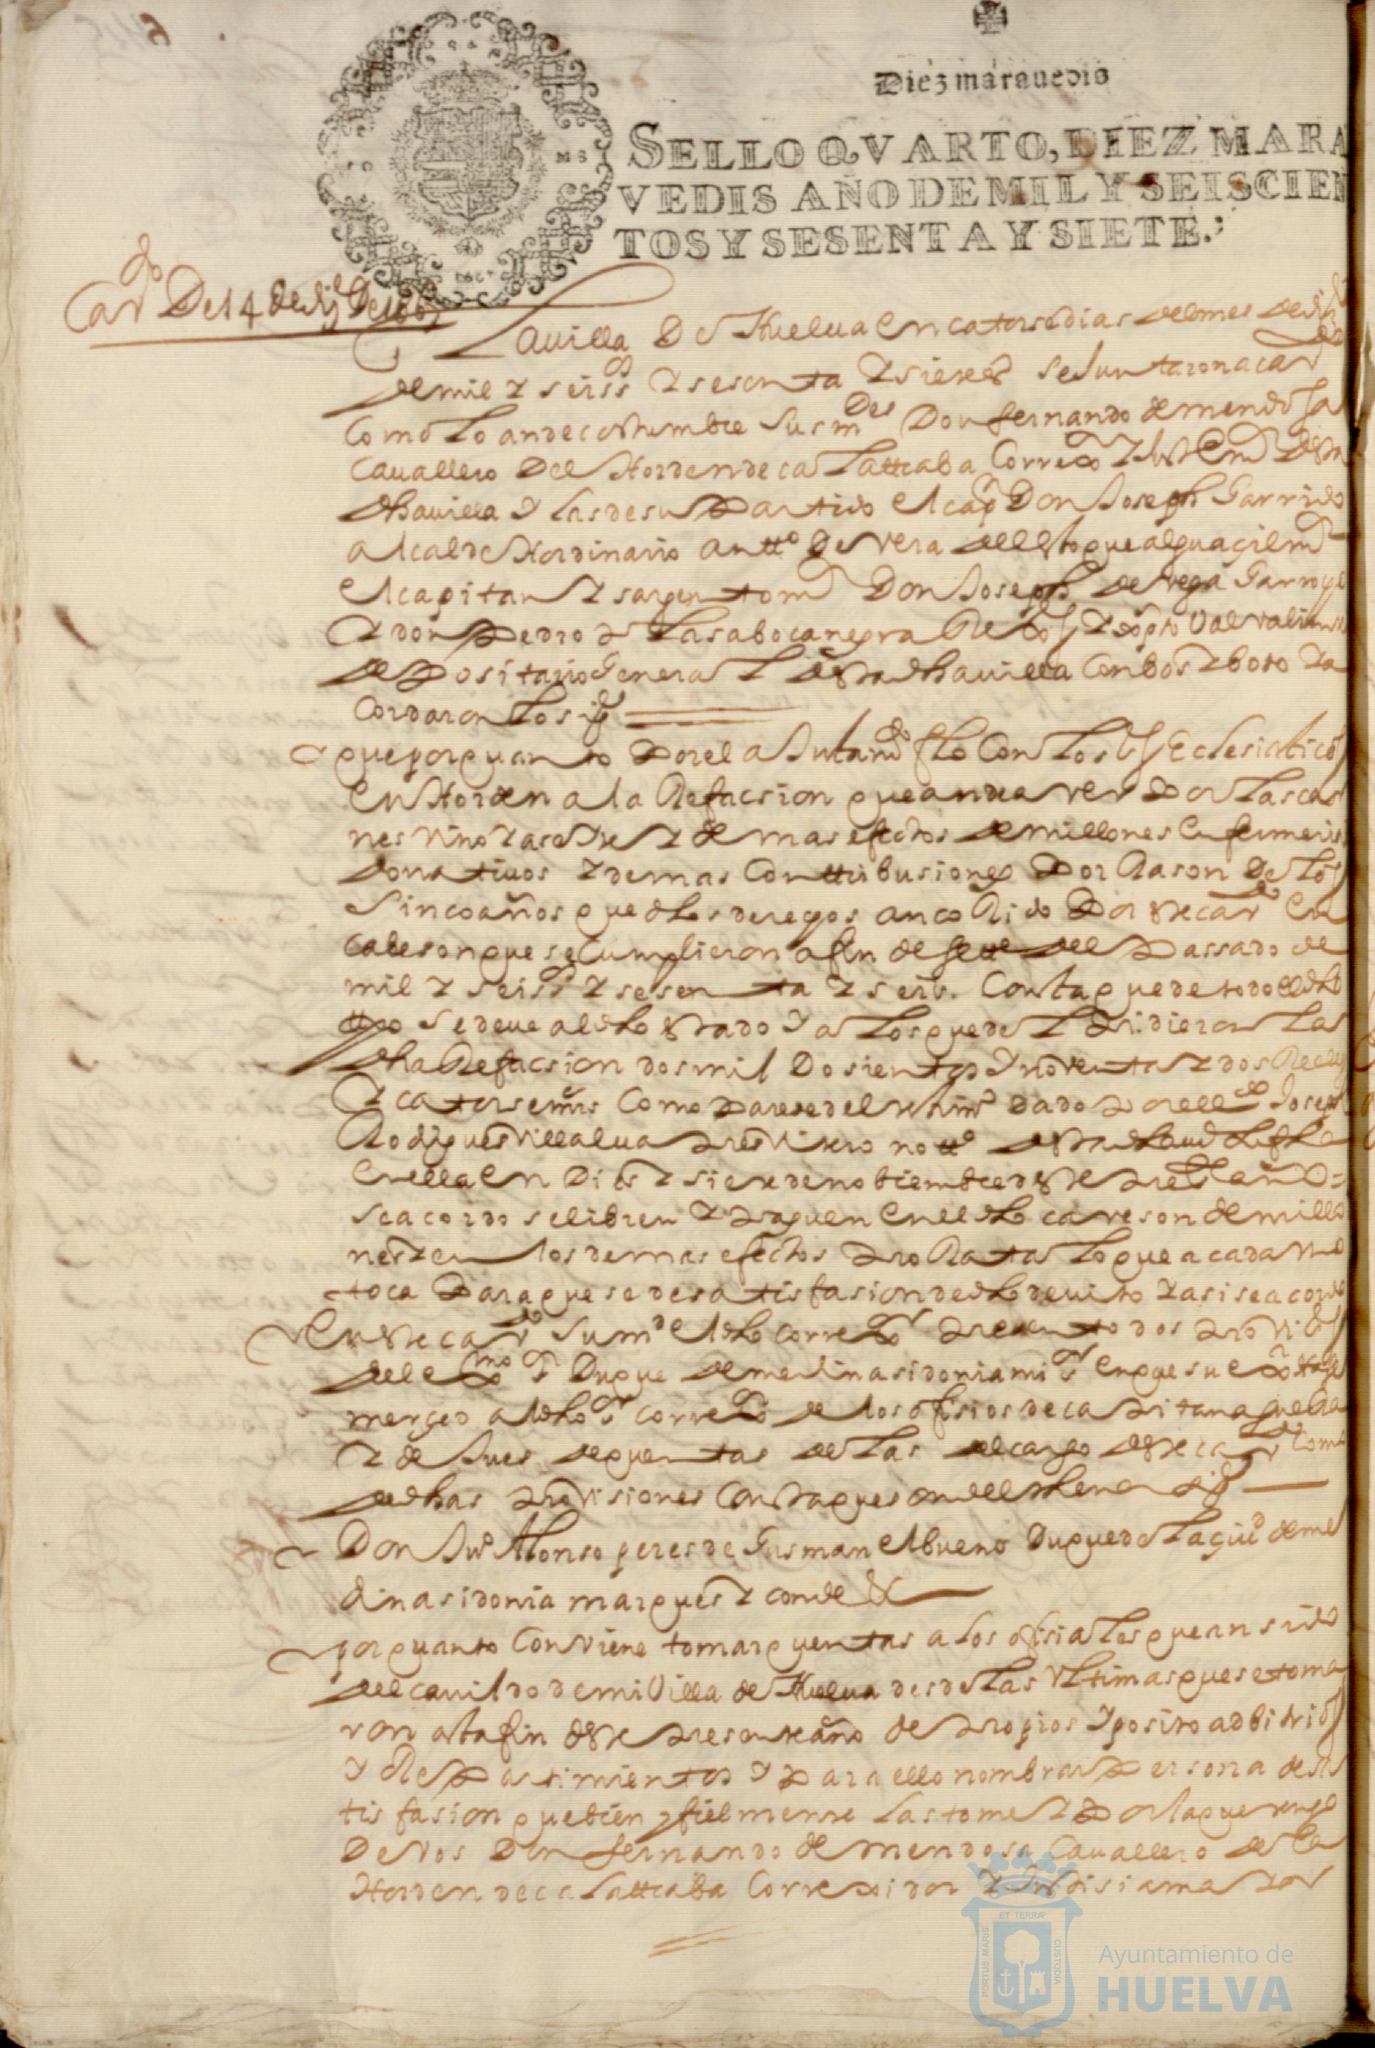 Diez marauedis
SELLO QVARTO, DIEZ MARA
VEDIS AÑO DE MIL Y SEISCIEN
TOS Y SESENTA Y SIETE.
Cavdo De 14 de
La villa De Huelua En catorse dias del mes de
de mil y seiss y sesenta y siete se Juntaron a cavdo
Como lo an de costumbre sus mdes Don fernando de mendosa
Cauallero Del Horden de calattraba Correxor
dha villa y las de su Partido el cap Don Joseph Garrido
alcalde Hordinario antto De Vera alguaçil mr
el capitan y sargento mr Don Joseph de Vega Garro
y don Pedro
depositario General desta dha villa Con bos y boto y a
Cordaron lo sigte
que por quanto Por el a Jutamdo fho Con los Eclesiasticos
En Horden a la Refacsion que an de aver Por las car
nes Vino y aseite y demas efectos de millones
donativos y demas Conttribusiones Por Rason De los
Sinco años que dhos deregos an corrido Por este cavdo En
cabeson que se Cumplieron a fin de del Passado de
mil y seiss y sesenta y seis. Consta que de todo el dho
tpo se deue al dho estado y a los que del Pidieron la
dha Refacsion dos mil Dosientos y noventa y dos Reales
y catorse mrs Como Parese del dado Por el Joseph
Rodrigues Villalua Presvitero notto desta dha
en ella En Dies y siete de nobiembre deste Preste año =
se acordo se libren y Paguen en el dho caveson de millo
nes y en los demas efectos Pro Rata lo que a cada uno
toca Para que se de satisfasion de dho devito y asi se acordo
En este cavdo Su md el dho correxor Presento dos Provis
del exmo sr Duque de medinasidonia mi sr en que su exa
merçed al dho sr correxor de los ofisios de capitan a guerra
y de Jues de quentas de las del cargo deste cavdo Como
de dhas Provisiones Consta que son del thenor sigte
Don Juo Alonso peres de Gusman el bueno Duque de la çiud de me
dinasidonia marques y conde &
por quanto Conviene tomar quentas a los ofisiales que an sido
del cavildo de mi Villa de Huelua desde las Vltimas que se toma
ron asta fin deste presente año de Propios y posito adbitrios
y Repartimientos y Para ello nombrar Persona de sa
tisfasion que bien y fielmente las tome y Por la que tengo
De Vos Don fernando de mendosa Cauallero de la
Horden de calattraba Correxidor y
PORTUS MARIS
ET TERRÆ
CUSTODIA
Ayuntamiento de
HUELVA